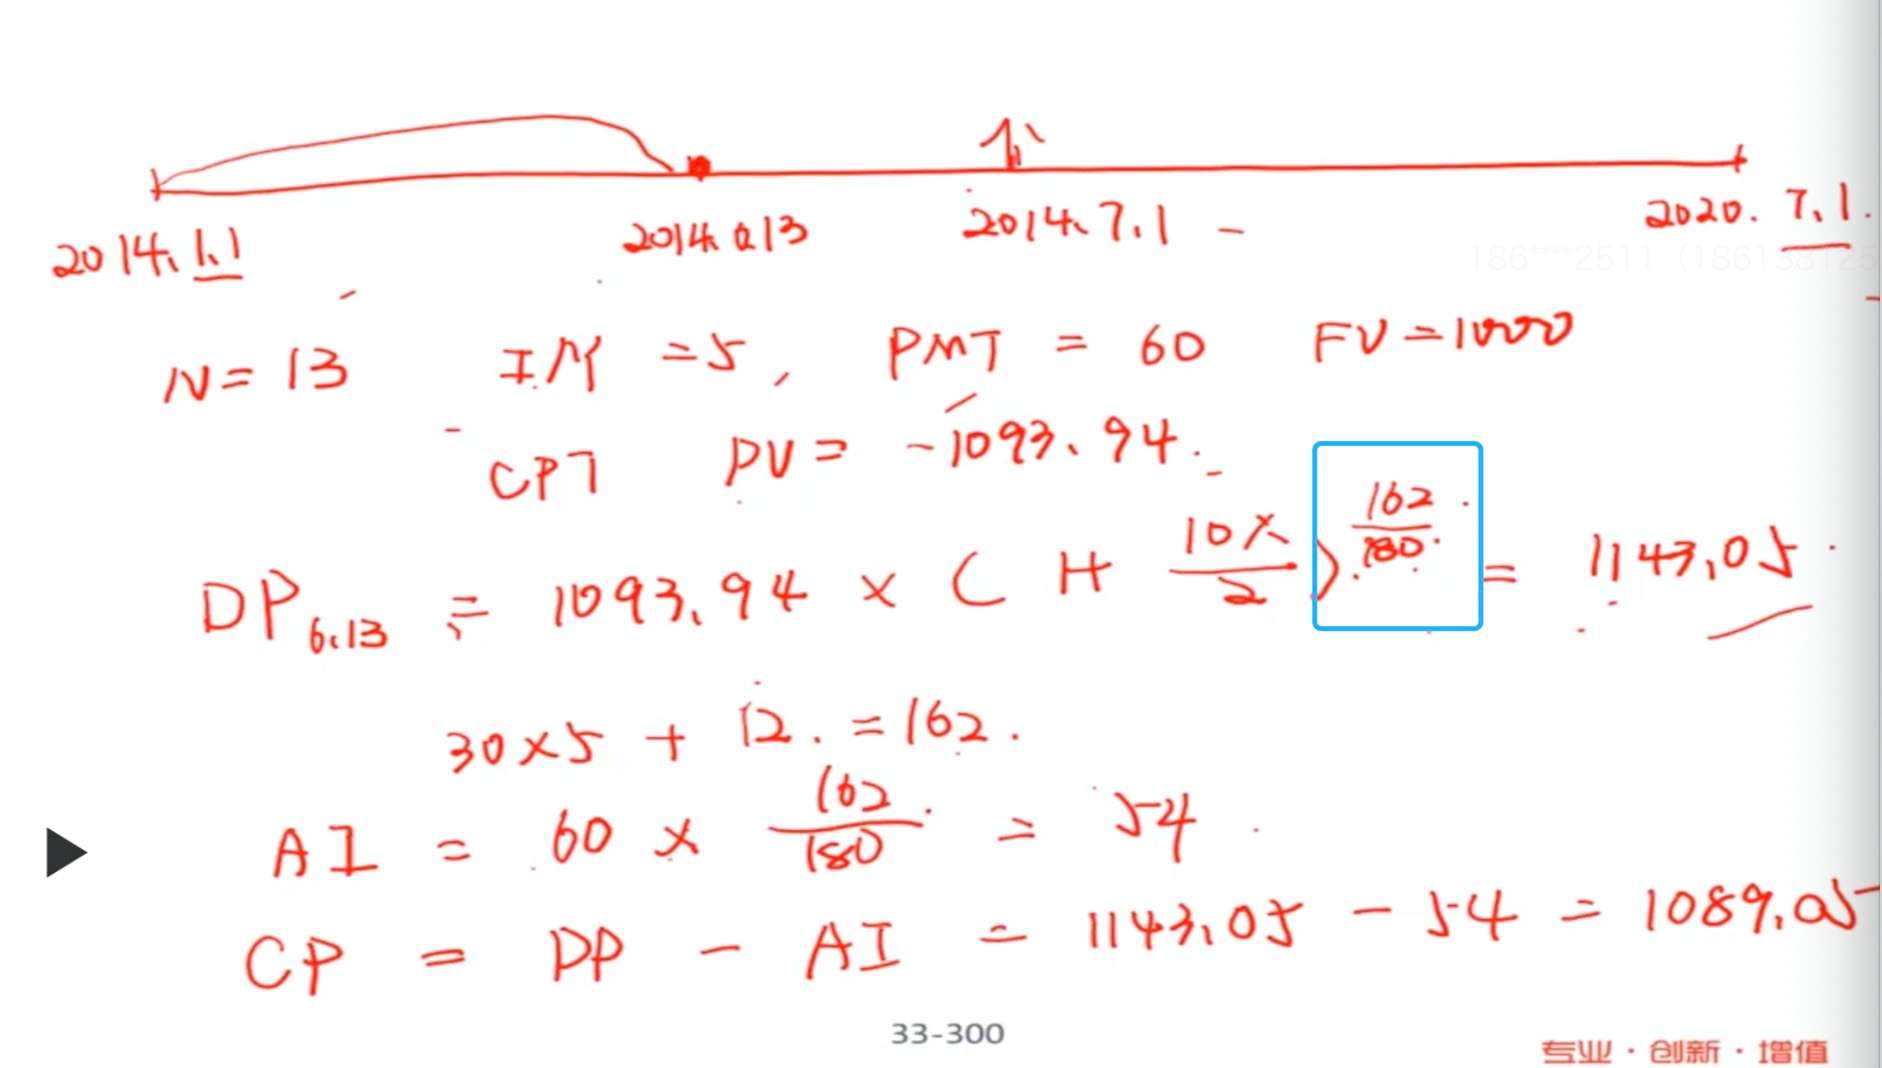 2014.1.1 2014.6.13 2014.7.1 2020.7.1.
186****2511 (186138125
N = 13 I/Y = 5, PMT = 60 FV = 1000
CPT PV = -1093.94.
DP6.13 = 1093.94 × (1+ 10%/2)^162/180 = 1143.05
30×5 + 12. = 162.
AI = 60 × 162/180 = 54
CP = DP - AI = 1143.05 - 54 = 1089.05
33-300
专业·创新·增值